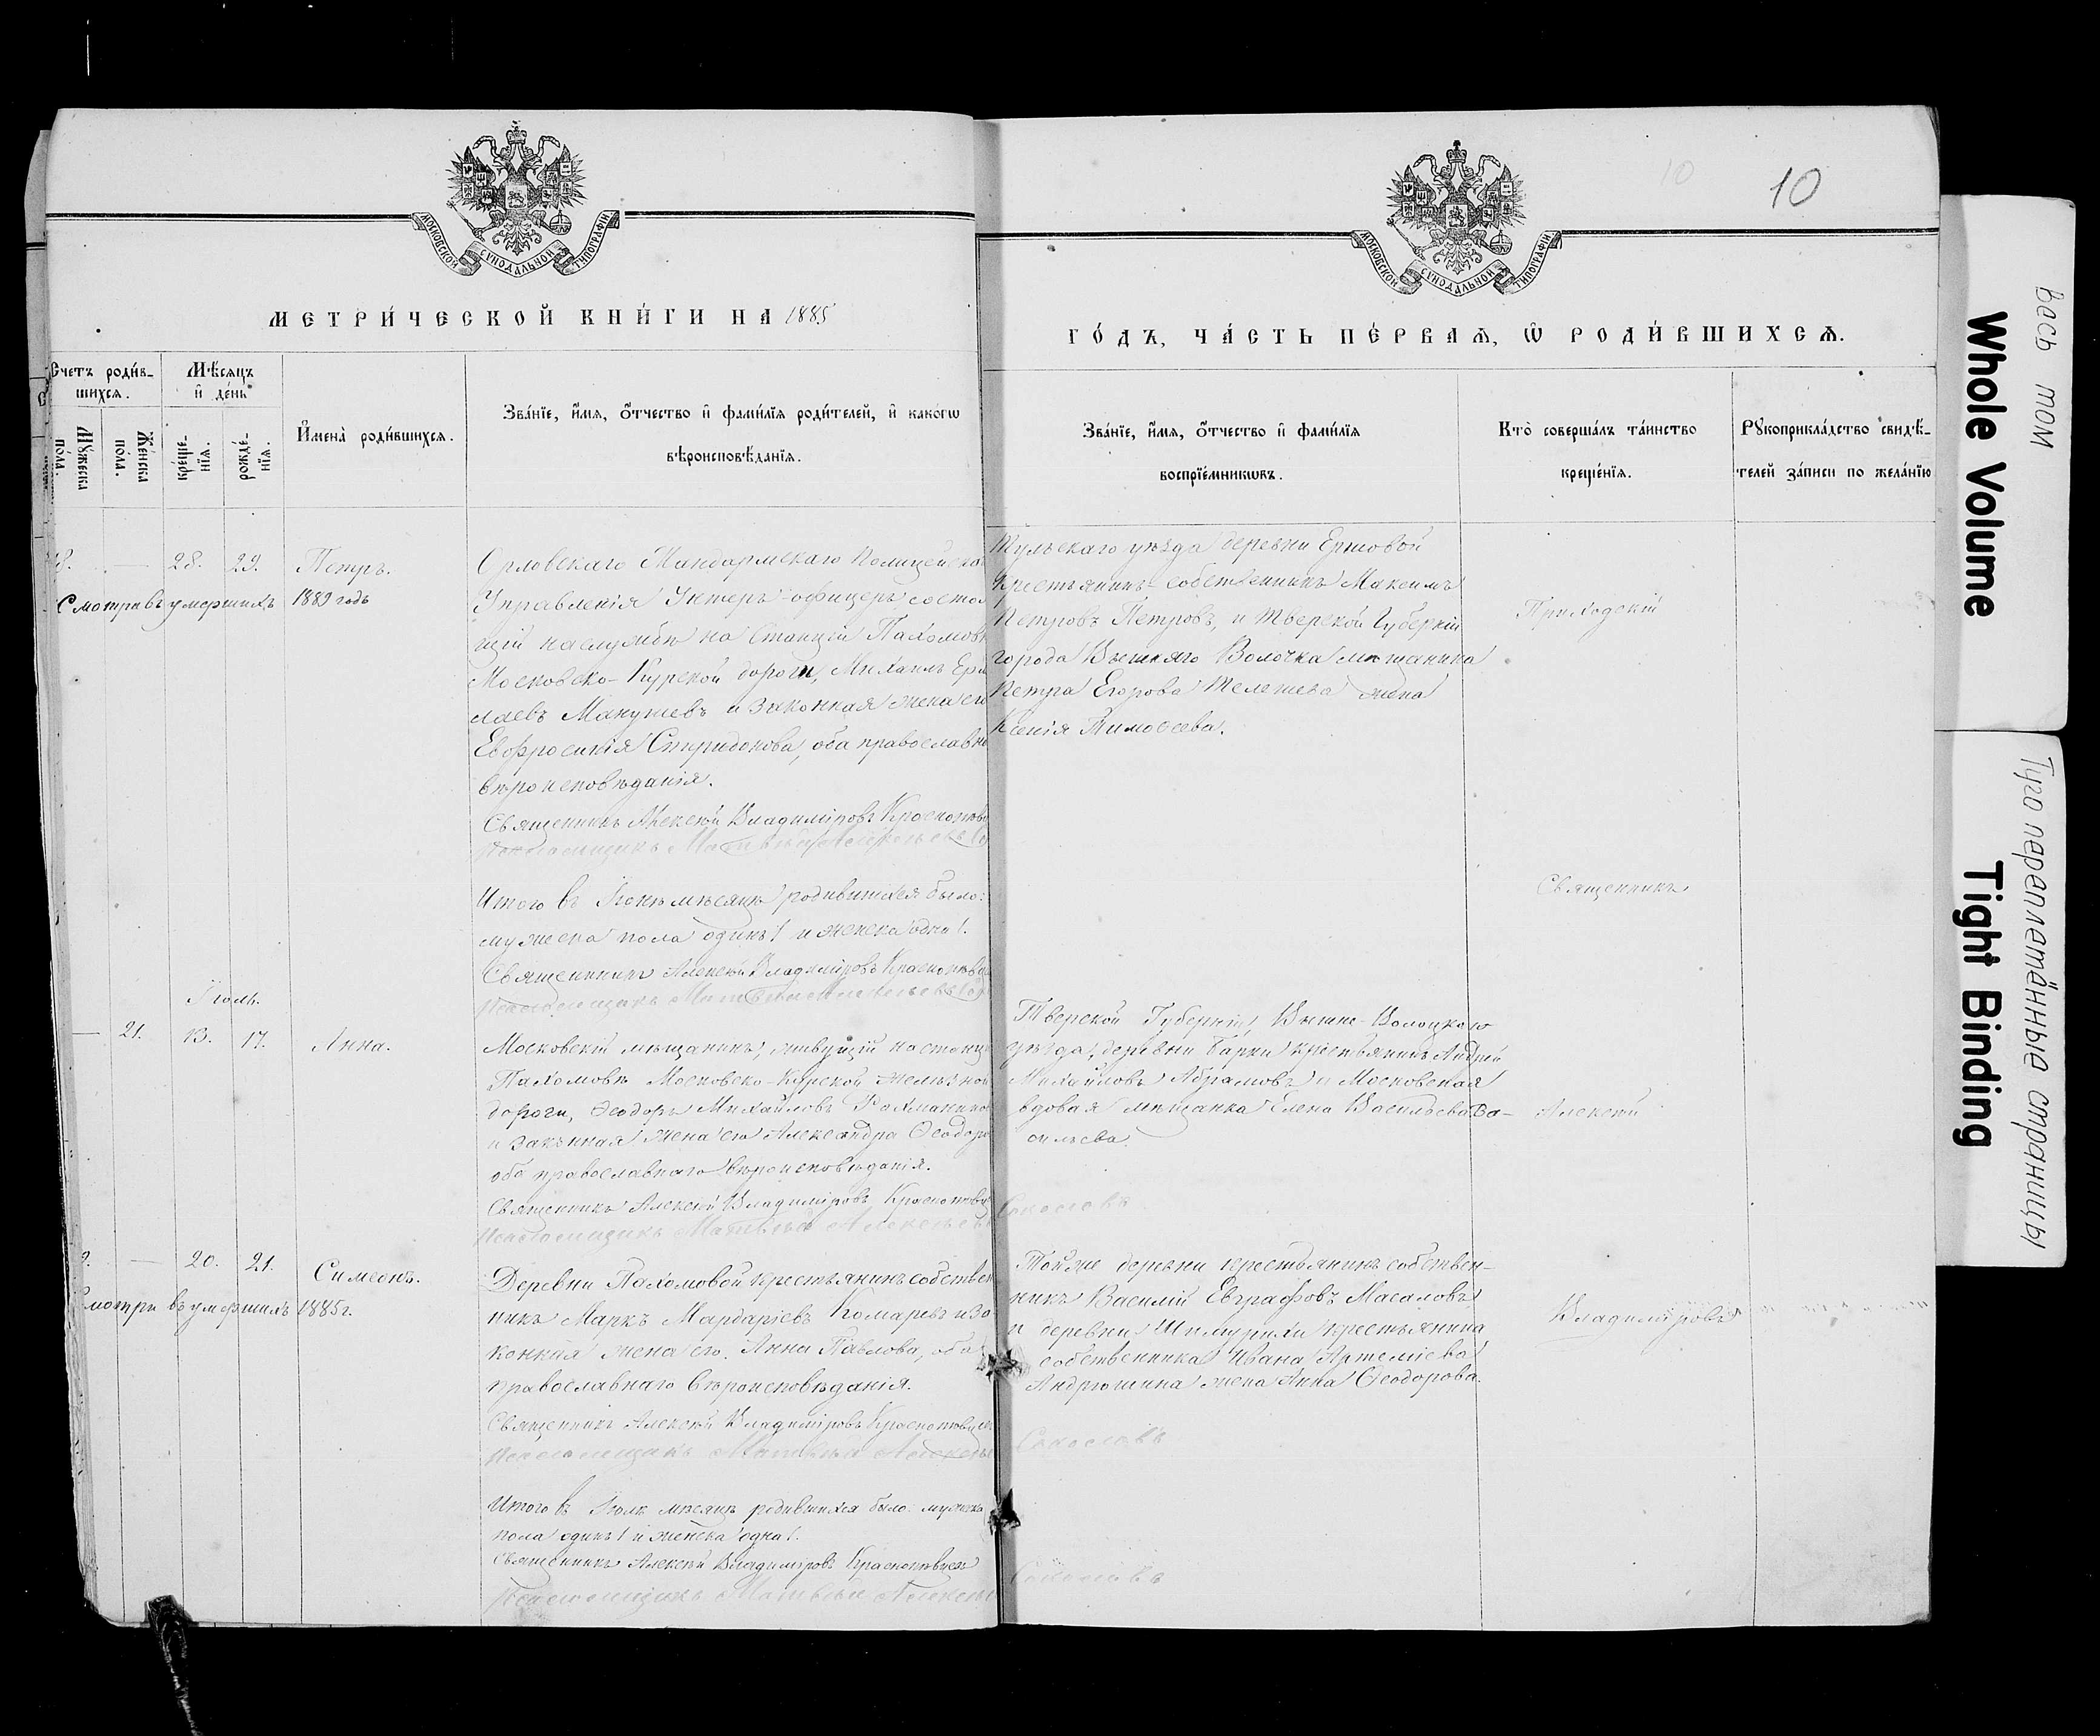 МОСКОВСКОЙ СѴНОДАЛЬНОЙ ТИПОГРАФІИ
МЕТРИ́ЧЕСКОЙ КНИ́ГИ НА 1885
Счетъ роди́в-
шихсѧ.
Мѣ́сѧцъ
и҆ де́нь
Мꙋ́жеска
по́ла.
Же́нска
по́ла.
креще́-
нїѧ.
рожде́-
нїѧ.
И҆мена̀ роди́вшихсѧ.
Зва́нїе, и҆́мѧ, ѻ҆́тчество и҆ фами́лїѧ роди́телей, и҆ како́гѡ
вѣроисповѣ́данїѧ.
28. 29. Петръ.
Смотри въ умершихъ 1889 годъ
Орловскаго Жандармскаго Полицейска
Управленія Унтеръ-офицеръ состоя
щій на службѣ на Станціи Пахомов
Московско-Курской дороги, Михаилъ
лаевъ Макушевъ и законная жена его
Евфросинія Спиридонова, оба православн
вѣроисповѣданія.
Священникъ Алексѣй Владиміровъ
Псаломщикъ Матвѣй Алексѣевъ
Итого въ Іюнѣ мѣсяцѣ родившихся было:
мужеска пола одинъ 1 и женска одна 1.
Священникъ Алексѣй Владиміровъ
Псаломщикъ Матвѣй Алексѣевъ
Іюль.
— 21. 13. 17. Анна.
Московскій мѣщанинъ, живущій на станц
Пахомовѣ Московско-Курской желѣзной
дороги, Ѳеодоръ Михайловъ
и законная жена его Александра Ѳеодор
оба православнаго вѣроисповѣданія.
Священникъ Алексѣй Владиміровъ
Псаломщикъ Матвѣй Алексѣевъ
— 20. 21. Симеонъ.
мотри въ умершихъ 1885 г.
Деревни Пахомовой крестьянинъ собствен
никъ Маркъ Мардаріевъ Комаревъ и за
конная жена его Анна Павлова, оба
православнаго вѣроисповѣданія.
Священникъ Алексѣй Владиміровъ
Псаломщикъ Матвѣй Алексѣ
Итого въ Іюлѣ мѣсяцѣ родившихся было: мужеска
пола одинъ 1 и женска одна 1.
Священникъ Алексѣй Владиміровъ
Псаломщикъ Матвѣй Алексѣ
10
10
МОСКОВСКОЙ СѴНОДАЛЬНОЙ ТИПОГРАФІИ
ГО́ДЪ, ЧА́СТЬ ПЕ́РВАѦ, Ѡ҆ РОДИ́ВШИХСѦ.
Зва́нїе, и҆́мѧ, ѻ҆́тчество и҆ фами́лїѧ
воспрїе́мникѡвъ.
Кто̀ соверша́лъ та́инство
креще́нїѧ.
Рꙋкоприкла́дство свидѣ́-
телей за́писи по жела́нїю
Тульскаго уѣзда деревни Ершовой
крестьянинъ-собственникъ Максимъ
Петровъ Петровъ, и Тверской Губерніи
города Вышняго Волочка мѣщанина
Петра Егорова Телешева жена
Ксенія Тимоѳеева.
Приходскій
Священникъ
Тверской Губерніи, Вышне-Волоцкого
уѣзда, деревни Барки крестьянинъ Андрей
Михайловъ Абрамовъ и Московская
вдовая мѣщанка Елена Васильева Ва-
сильева.
Алексѣй
Соколовъ
Тойже деревни крестьянинъ собствен-
никъ Василій Евграфовъ Масаловъ
и деревни крестьянина
собственника Ивана Артеміева
Андрюшина жена Анна Ѳеодорова.
Владиміровъ
Соколовъ
Соколовъ
весь том
Whole Volume
Туго переплетённые страницы
Tight Binding